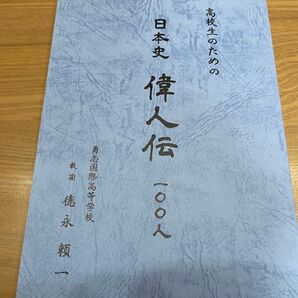 高校生のための
日本史 偉人伝 一〇〇人
勇志国際高等学校
教諭 德永 頼一